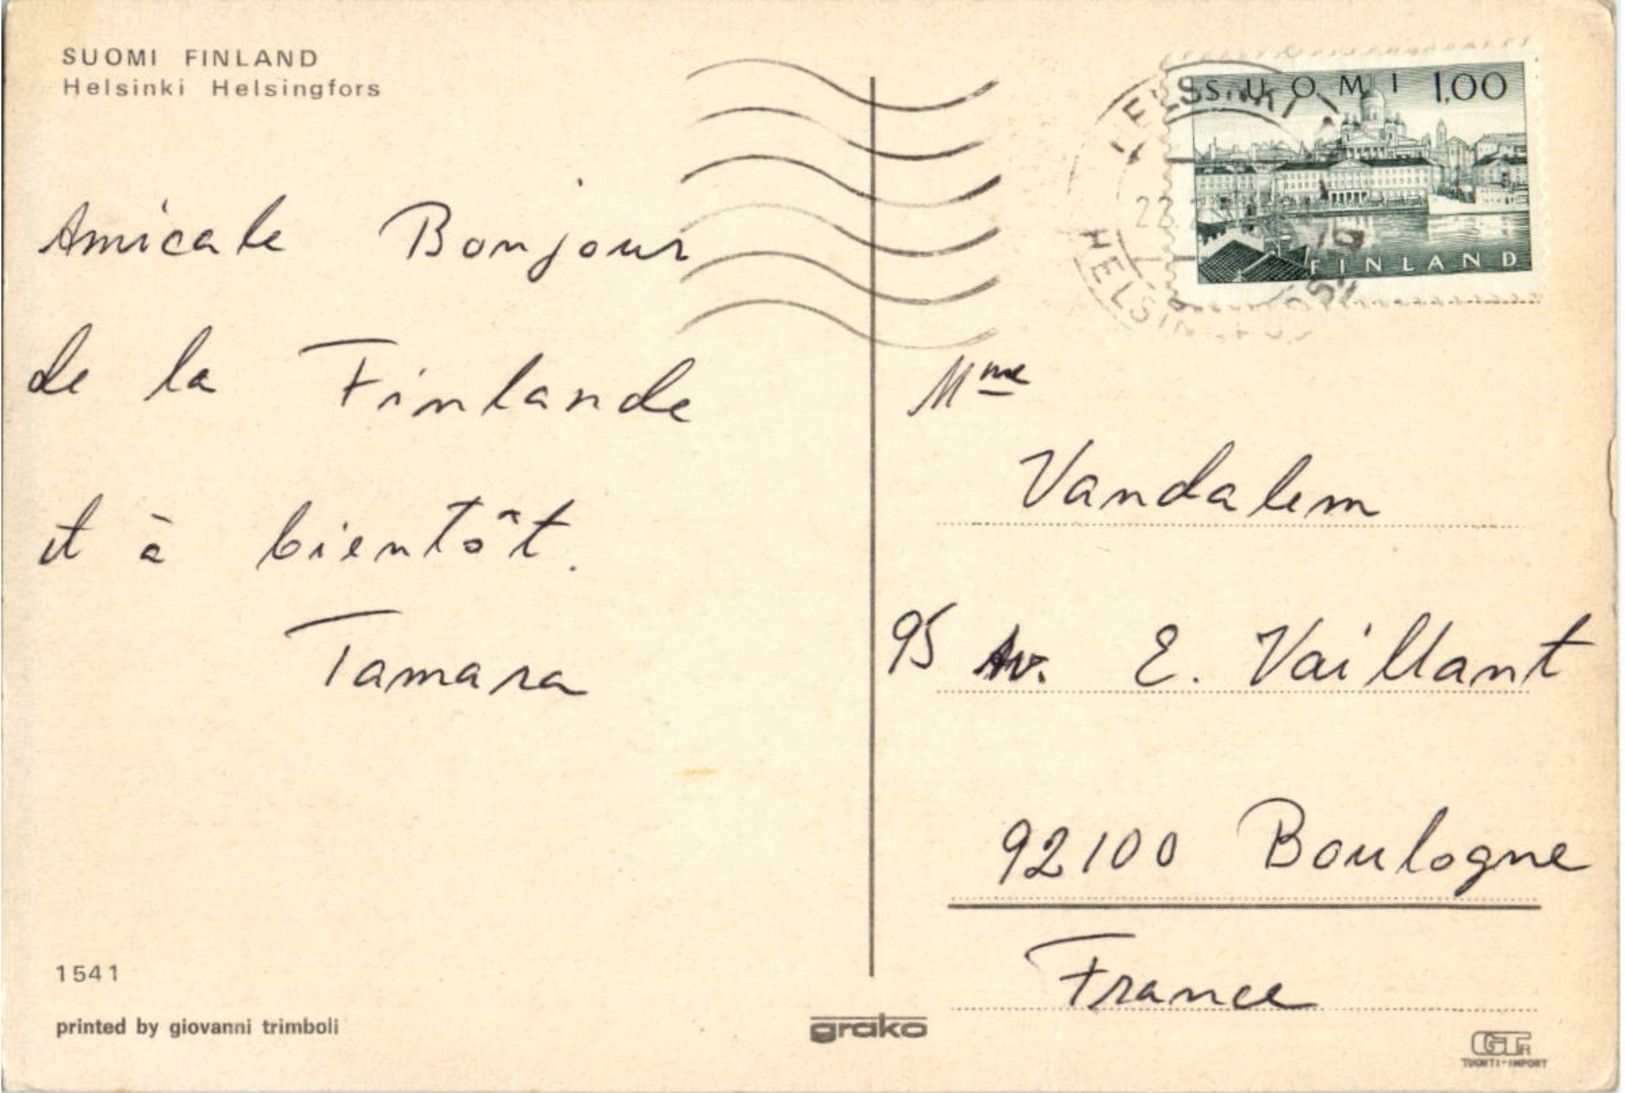 SUOMI FINLAND
Helsinki Helsingfors
Amicale Bonjour
de la Finlande
et à bientôt.
Tamara
1541
printed by giovanni trimboli
grako
SUOMI 1,00
FINLAND
HELSINKI
22
Mme
Vandalem
95 Av. E. Vaillant
92100 Boulogne
France
TUONTI-IMPORT